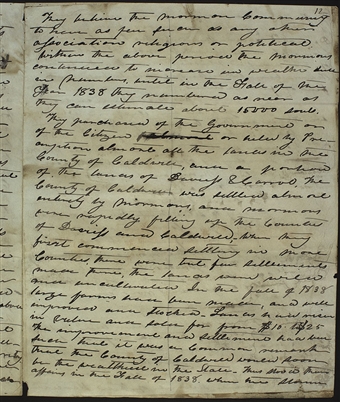 They believe the Mormon Community
to have as few in it as any other
association religious or political
Within the above period the Mormons
continued to increase in wealth and
in numbers, until in the Fall of the
Year 1838 they numbered as near as
they can estimate about 15000 souls.
They purchased of the Government or
of the Citizens or held by Pre-
emption almost all the lands in the
County of Caldwell, and a portion
of the lands of Daviess & Carrol. The
County of Caldwell was settled almost
entirely by Mormons, and Mormons
were rapidly filling up the Counties
of Daviess and Caldwell. When they
first commenced settling in those
Counties, there were but few settlements
made there, the lands were wild
and uncultivated. In the fall of 1838
large farms had been made and well
improved and stocked. Lands had risen
in value and sold for from $10 to $25
The improvement and settlement had been
such that it was a common remark
that the County of Caldwell would soon
be the wealthiest in the State. This stood
affairs in the Fall of 1838, when the storm